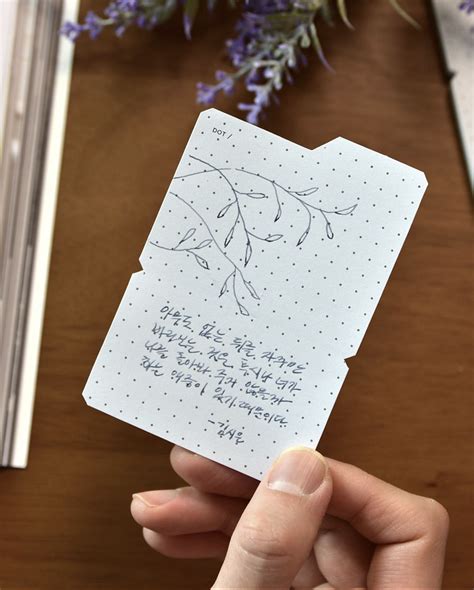 DOT /
아무도 없는 뒤를 자꾸만
바라보는 것은 혹시나 네가
나를 돌아봐 주지 않을까
하는 애증이 있기 때문이다.